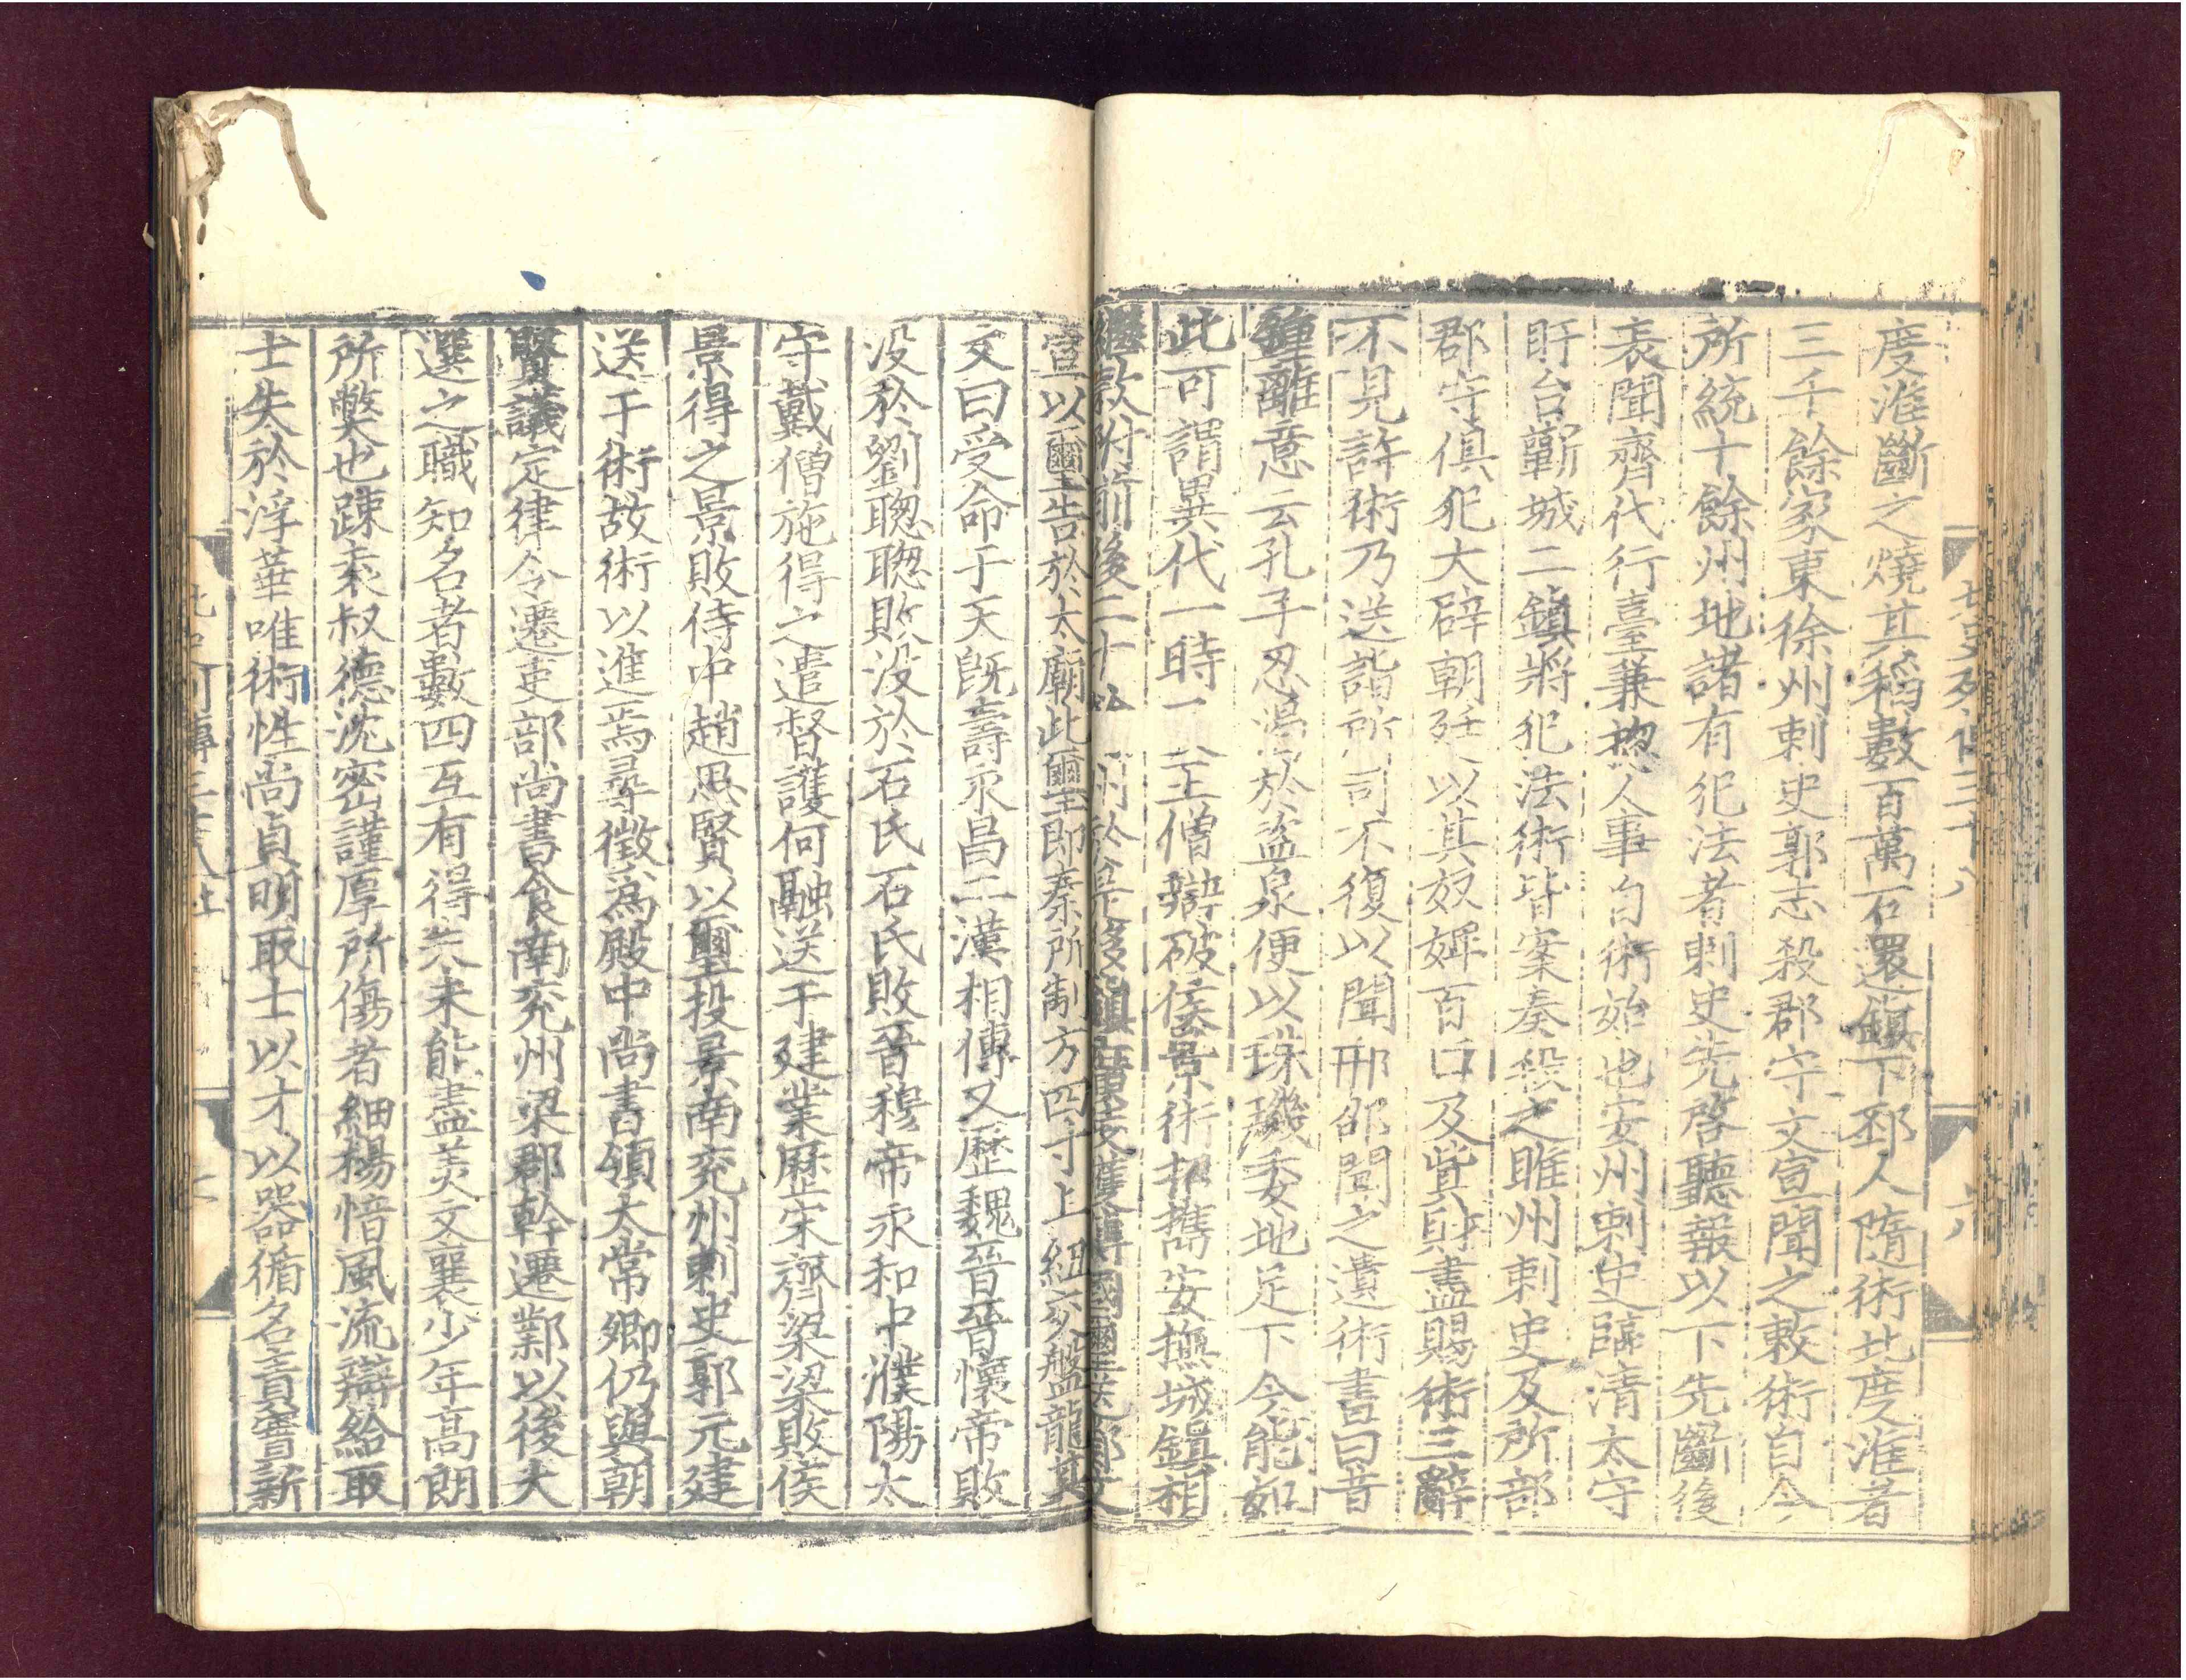 北史列傳三十八 六
度淮斷之燒其稻數百萬石還鎮下邳人隨術北度淮者
三千餘家東徐州刺史郭志殺郡守文宣聞之敕術自今
所統十餘州地諸有犯法者刺史先啓聽報以下先斷後
表聞齊代行臺兼揔人事自術始也安州刺史臨清太守
盱台蘄城二鎮將犯法術皆案奏殺之睢州刺史及所部
郡守俱犯大辟朝廷以其奴婢百口及貲財盡賜術三辭
不見許術乃送詣所司不復以聞邢邵聞之遺術書曰昔
鍾離意云孔子忍渴於盜泉便以珠璣委地足下今能如
此可謂異代一時 王僧辯破侯景術招攜安撫城鎮相
繼款附前後二十 州於是移鎮廣陵獲傳國璽送鄴文
宣以璽告於太廟此璽即秦所制方四寸上紐交盤龍其
文曰受命于天旣壽永昌二漢相傳又歷魏晉晉懷帝敗
没於劉聦聦敗没於石氏石氏敗晉穆帝永和中濮陽太
守戴僧施得之遣督護何融送于建業歷宋齊梁梁敗侯
景得之景敗侍中趙思賢以璽投景南兖州刺史郭元建
送于術故術以進焉尋徵爲殿中尚書領太常卿仍與朝
賢議定律令遷吏部尚書食南兖州梁郡幹遷鄴以後大
選之職知名者數四互有得失未能盡美文襄少年高朗
所弊也踈袁叔德沈密謹厚所傷者細楊愔風流辯給取
士失於浮華唯術性尚貞明取士以才以器循名責實新